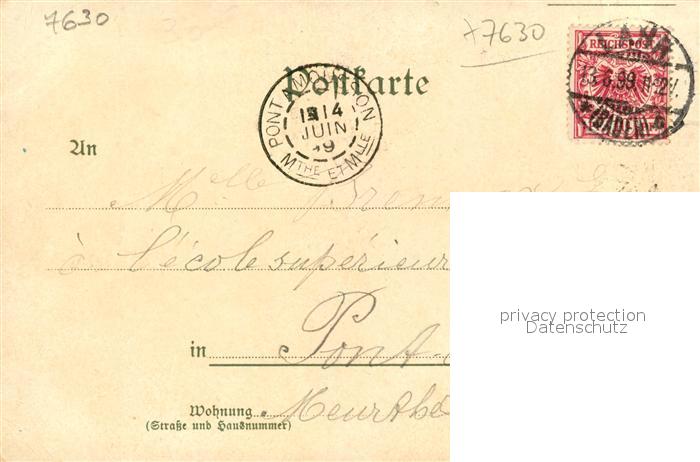 7630
+7630
REICHSPOST
LAHR
13.6.99
(BADEN)
Postkarte
PONT A MOUSSON
14
JUIN
99
MTHE ET MLLE
An
Melle
à l'école supérieur
in Pont-
Wohnung Meurthe
(Straße und Hausnummer)
privacy protection
Datenschutz